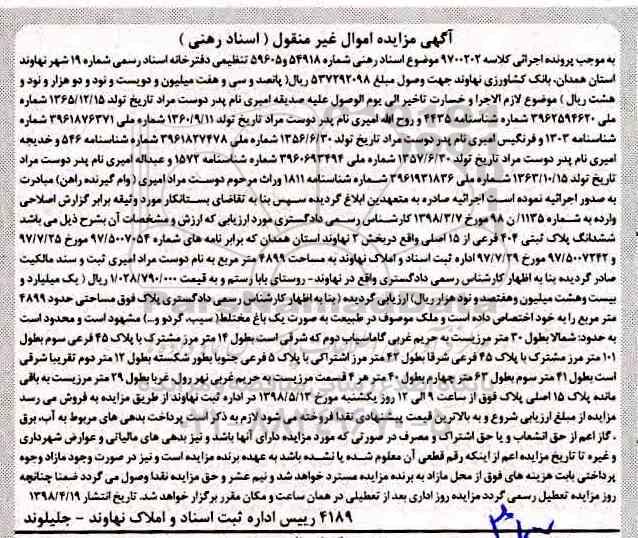 آگهی مزایده اموال غیر منقول ( اسناد رهنی )
به موجب پرونده اجرائی کلاسه ۹۷۰۰۲۰۲ موضوع اسناد رهنی شماره ۵۴۹۱۸ و۵۹۶۰۵ تنظیمی دفترخانه اسناد رسمی شماره ۱۹ شهر نهاوند
استان همدان، بانک کشاورزی نهاوند جهت وصول مبلغ ۵۳۷۲۹۲۰۹۸ ریال( پانصد و سی و هفت میلیون و دویست و نود و دو هزار و نود و
هشت ریال ) موضوع لازم الاجرا و خسارت تاخیر الی یوم الوصول علیه صدیقه امیری نام پدر دوست مراد تاریخ تولد ۱۳۶۵/۱۲/۱۵ شماره
ملی ۳۹۶۲۵۹۴۶۲۰ شماره شناسنامه ۴۴۳۵ و روح الله امیری نام پدر دوست مراد تاریخ تولد ۱۳۶۰/۹/۱۱ شماره ملی ۳۹۶۱۸۷۶۳۷۱ شماره
شناسنامه ۱۳۰۳ و فرنگیس امیری نام پدر دوست مراد تاریخ تولد ۱۳۵۶/۶/۳۰ شماره ملی ۳۹۶۱۸۲۷۴۷۸ شماره شناسنامه ۵۴۶ و خدیجه
امیری نام پدر دوست مراد تاریخ تولد ۱۳۵۷/۶/۳۰ شماره ملی ۳۹۶۰۶۹۳۴۹۴ شماره شناسنامه ۱۵۷۲ و عبداله امیری نام پدر دوست مراد
تاریخ تولد ۱۳۶۳/۱۰/۱۵ شماره ملی ۳۹۶۱۹۳۱۸۳۶ شماره شناسنامه ۱۸۱۱ وراث مرحوم دوست مراد امیری ( وام گیرنده راهن) مبادرت
به صدور اجرائیه نموده است اجرائیه صادره به متعهدین ابلاغ گردیده سپس بنا به تقاضای بستانکار مورد وثیقه برابر گزارش اصلاحی
وارده به شماره ۱۱۳۵/ ن ۹۸ مورخ ۱۳۹۸/۳/۷ کارشناس رسمی دادگستری مورد ارزیابی که ارزش و مشخصات آن بشرح ذیل می باشد
ششدانگ پلاک ثبتی ۴۰۴ فرعی از ۱۵ اصلی واقع دربخش ۲ نهاوند استان همدان که برابر نامه های شماره ۹۷/۵۰۰۷۰۵۴ مورخ ۹۷/۷/۲۵
و ۹۷/۵۰۰۷۲۴۲ مورخ ۹۷/۷/۲۹ اداره ثبت اسناد و املاک نهاوند به مساحت ۴۸۹۹ متر مربع به نام دوست مراد امیری ثبت و سند مالکیت
صادر گردیده بنا به اظهار کارشناس رسمی دادگستری واقع در نهاوند - روستای بابا رستم و به قیمت ۱/۰۲۸/۷۹۰/۰۰۰ ریال ( یک میلیارد و
بیست وهشت میلیون وهفتصد و نود هزار ریال) ارزیابی گردیده ( بنا به اظهار کارشناس رسمی دادگستری پلاک فوق مساحتی حدود ۴۸۹۹
متر مربع را به خود اختصاص داده است و ملک موصوف در طبیعت به صورت یک باغ مختلط( سیب، گردو و...) مشهود است و محدود است
به حدود: شمالا بطول ۳۰ متر مرزیست به حریم غربی گاماسیاب دوم که شرقی است بطول ۱۴ متر مرز مشترک با پلاک ۴۵ فرعی سوم بطول
۱۰۱ متر مرز مشترک با پلاک ۴۵ فرعی شرقا بطول ۴۲ متر مرز اشتراکی با پلاک ۵ فرعی جنوبا بطور شکسته بطول ۱۲ متر دوم تقریبا شرقی
است بطول ۴۱ متر سوم بطول ۶۳ متر چهارم بطول ۴۰ متر هر ۴ قسمت مرزیست به حریم غربی نهر رول، غربا بطول ۲۹ متر مرزیست به باقی
مانده پلاک ۱۵ اصلی پلاک فوق از ساعت ۹ الی ۱۲ روز یکشنبه مورخ ۱۳۹۸/۵/۱۳ در اداره ثبت نهاوند از طریق مزایده به فروش می رسد
مزایده از مبلغ ارزیابی شروع و به بالاترین قیمت پیشنهادی نقدا فروخته می شود لازم به ذکر است پرداخت بدهی های مربوط به آب، برق
، گاز اعم از حق انشعاب و یا حق اشتراک و مصرف در صورتی که مورد مزایده دارای آنها باشد و نیز بدهی های مالیاتی و عوارض شهرداری
و غیره تا تاریخ مزایده اعم از اینکه رقم قطعی آن معلوم شده یا نشده باشد به عهده برنده مزایده است و نیز در صورت وجود مازاد وجوه
پرداختی بابت هزینه های فوق از محل مازاد به برنده مزایده مسترد خواهد شد و نیم عشر و حق مزایده نقدا وصول می گردد ضمنا چنانچه
روز مزایده تعطیل رسمی گردد مزایده روز اداری بعد از تعطیلی در همان ساعت و مکان مقرر برگزار خواهد شد. تاریخ انتشار ۱۳۹۸/۴/۱۹
۴۱۸۹ رییس اداره ثبت اسناد و املاک نهاوند - جلیلوند